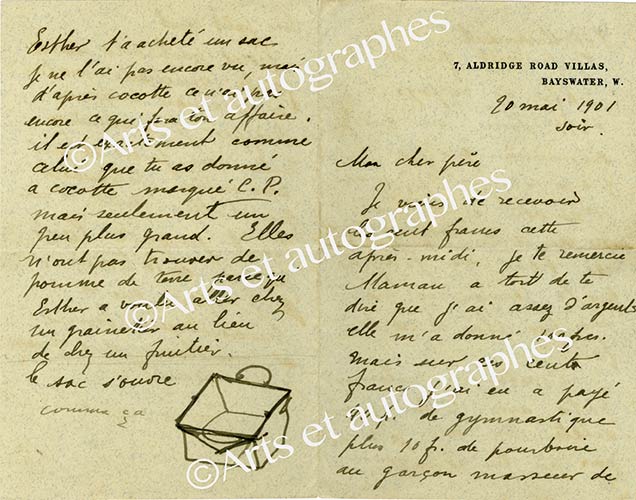 7, ALDRIDGE ROAD VILLAS,
BAYSWATER, W.
20 mai 1901
Soir.
Mon cher père
Je viens de recevoir
cent francs cette
après-midi, je te remercie
Maman a tort de te
dire que j'ai assez d'argent
elle m'a donné
mais sur ces cents
francs j'en a payé
de gymnastique
plus 10 f. de pourboire
au garçon masseur de
Esther t'a acheté un sac
je ne l'ai pas encore vu, mais
d'après cocotte ce
encore ce affaire.
il est exactement comme
celui que tu as donné
a cocotte marqué C. P.
mais seulement un
peu plus grand. Elles
n'ont pas trouver de
pomme de terre parcequ
Esther a voulu aller chez
un grainetier au lieu
de chez un fruitier.
le sac s'ouvre
comme ça
©Arts et autographes
©Arts et autographes
©Arts et autographes
©Arts et autographes